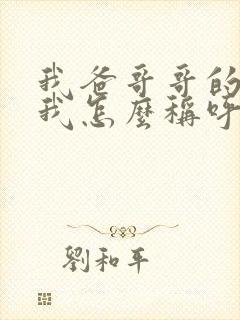 我爸哥哥的
我怎麼稱呼
劉和平